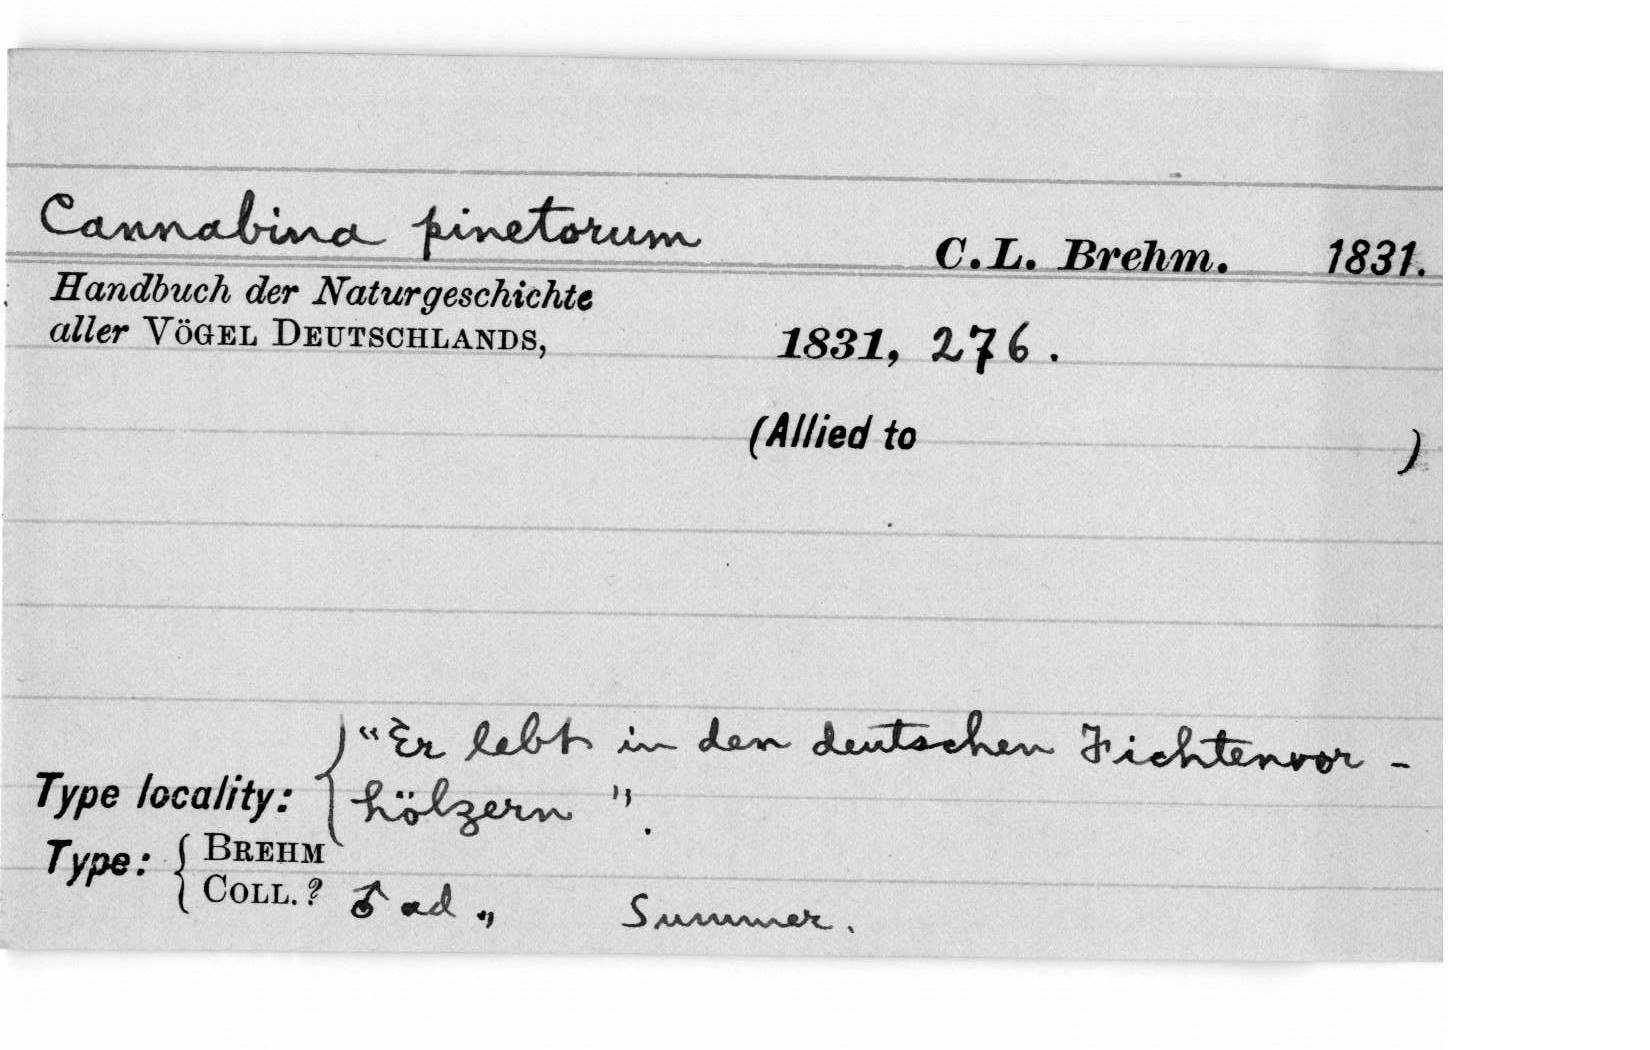 Cannabina pinetorum C.L. Brehm. 1831.
Handbuch der Naturgeschichte
aller VÖGEL DEUTSCHLANDS, 1831, 276.
(Allied to )
"Er lebt in den deutschen Fichtenvor-
Type locality: hölzern".
Type: BREHM
COLL.? ♂ ad., Summer.